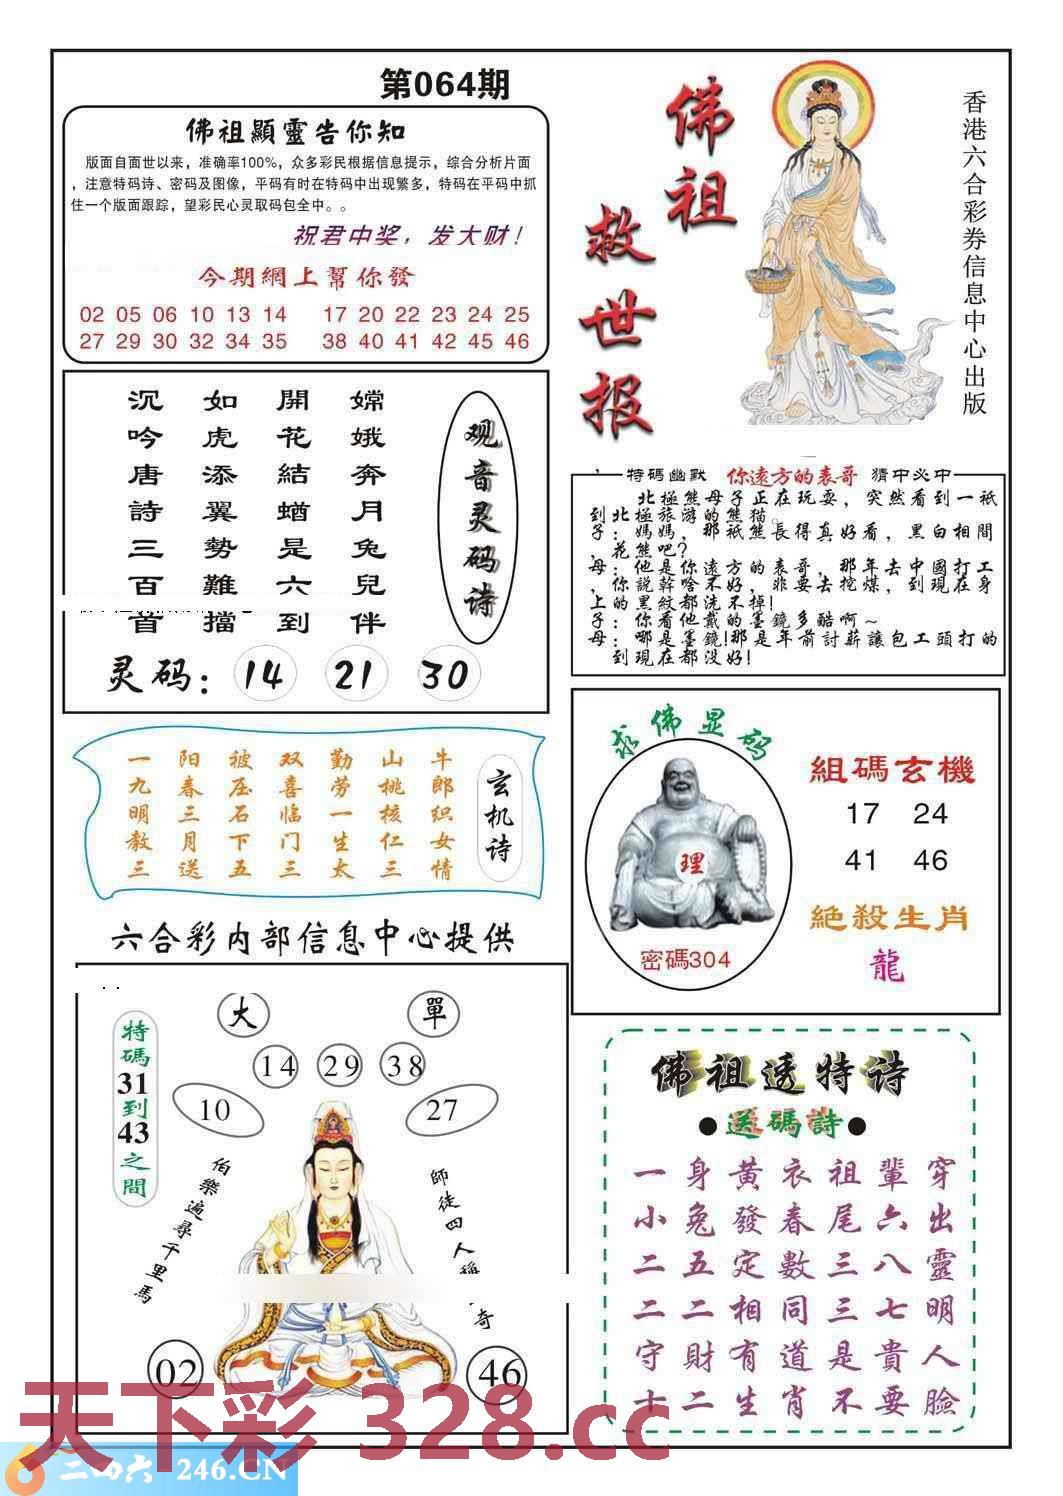 第064期
佛祖顯靈告你知
版面自面世以来，准确率100%，众多彩民根据信息提示，综合分析片面
，注意特码诗、密码及图像，平码有时在特码中出现繁多，特码在平码中抓
住一个版面跟踪，望彩民心灵取码包全中。。
祝君中奖，发大财！
今期網上幫你發
02 05 06 10 13 14 17 20 22 23 24 25
27 29 30 32 34 35 38 40 41 42 45 46
佛祖
救世报
香港六合彩券信息中心出版
观音灵码诗
嫦娥奔月兔兒伴
開花結蝤是六到
如虎添翼勢難擋
沉吟唐詩三百首
灵码：14 21 30
特碼幽默 你遠方的表哥 猜中必中
北極熊母子正在玩耍，突然看到一衹
到北極旅游的熊猫。
子：媽媽，那衹熊長得真好看，黑白相間
，花熊吧？
母：他是你遠方的表哥，那年去中國打工
，你說幹啥不好，非要去挖煤，到現在身
上的黑紋都洗不掉！
子：你看他戴的墨鏡多酷啊～
母：哪是墨鏡！那是年前討薪讓包工頭打的
到現在都没好！
玄机诗
牛郎织女情
山桃核仁三
勤劳一生太
双喜临门三
被压石下五
阳春三月送
一九明教三
求佛显码
理
密碼304
組碼玄機
17 24
41 46
絶殺生肖
龍
六合彩内部信息中心提供
特碼31到43之間
大 單
14 29 38
10 27
伯樂遍尋千里馬
師徒四人
奇
02 46
佛祖透特诗
●送碼詩●
一身黃衣祖輩穿
小兔發春尾六出
二五定數三八靈
二二相同三七明
守財有道是貴人
十二生肖不要臉
天下彩 328.cc
二四六 246.CN